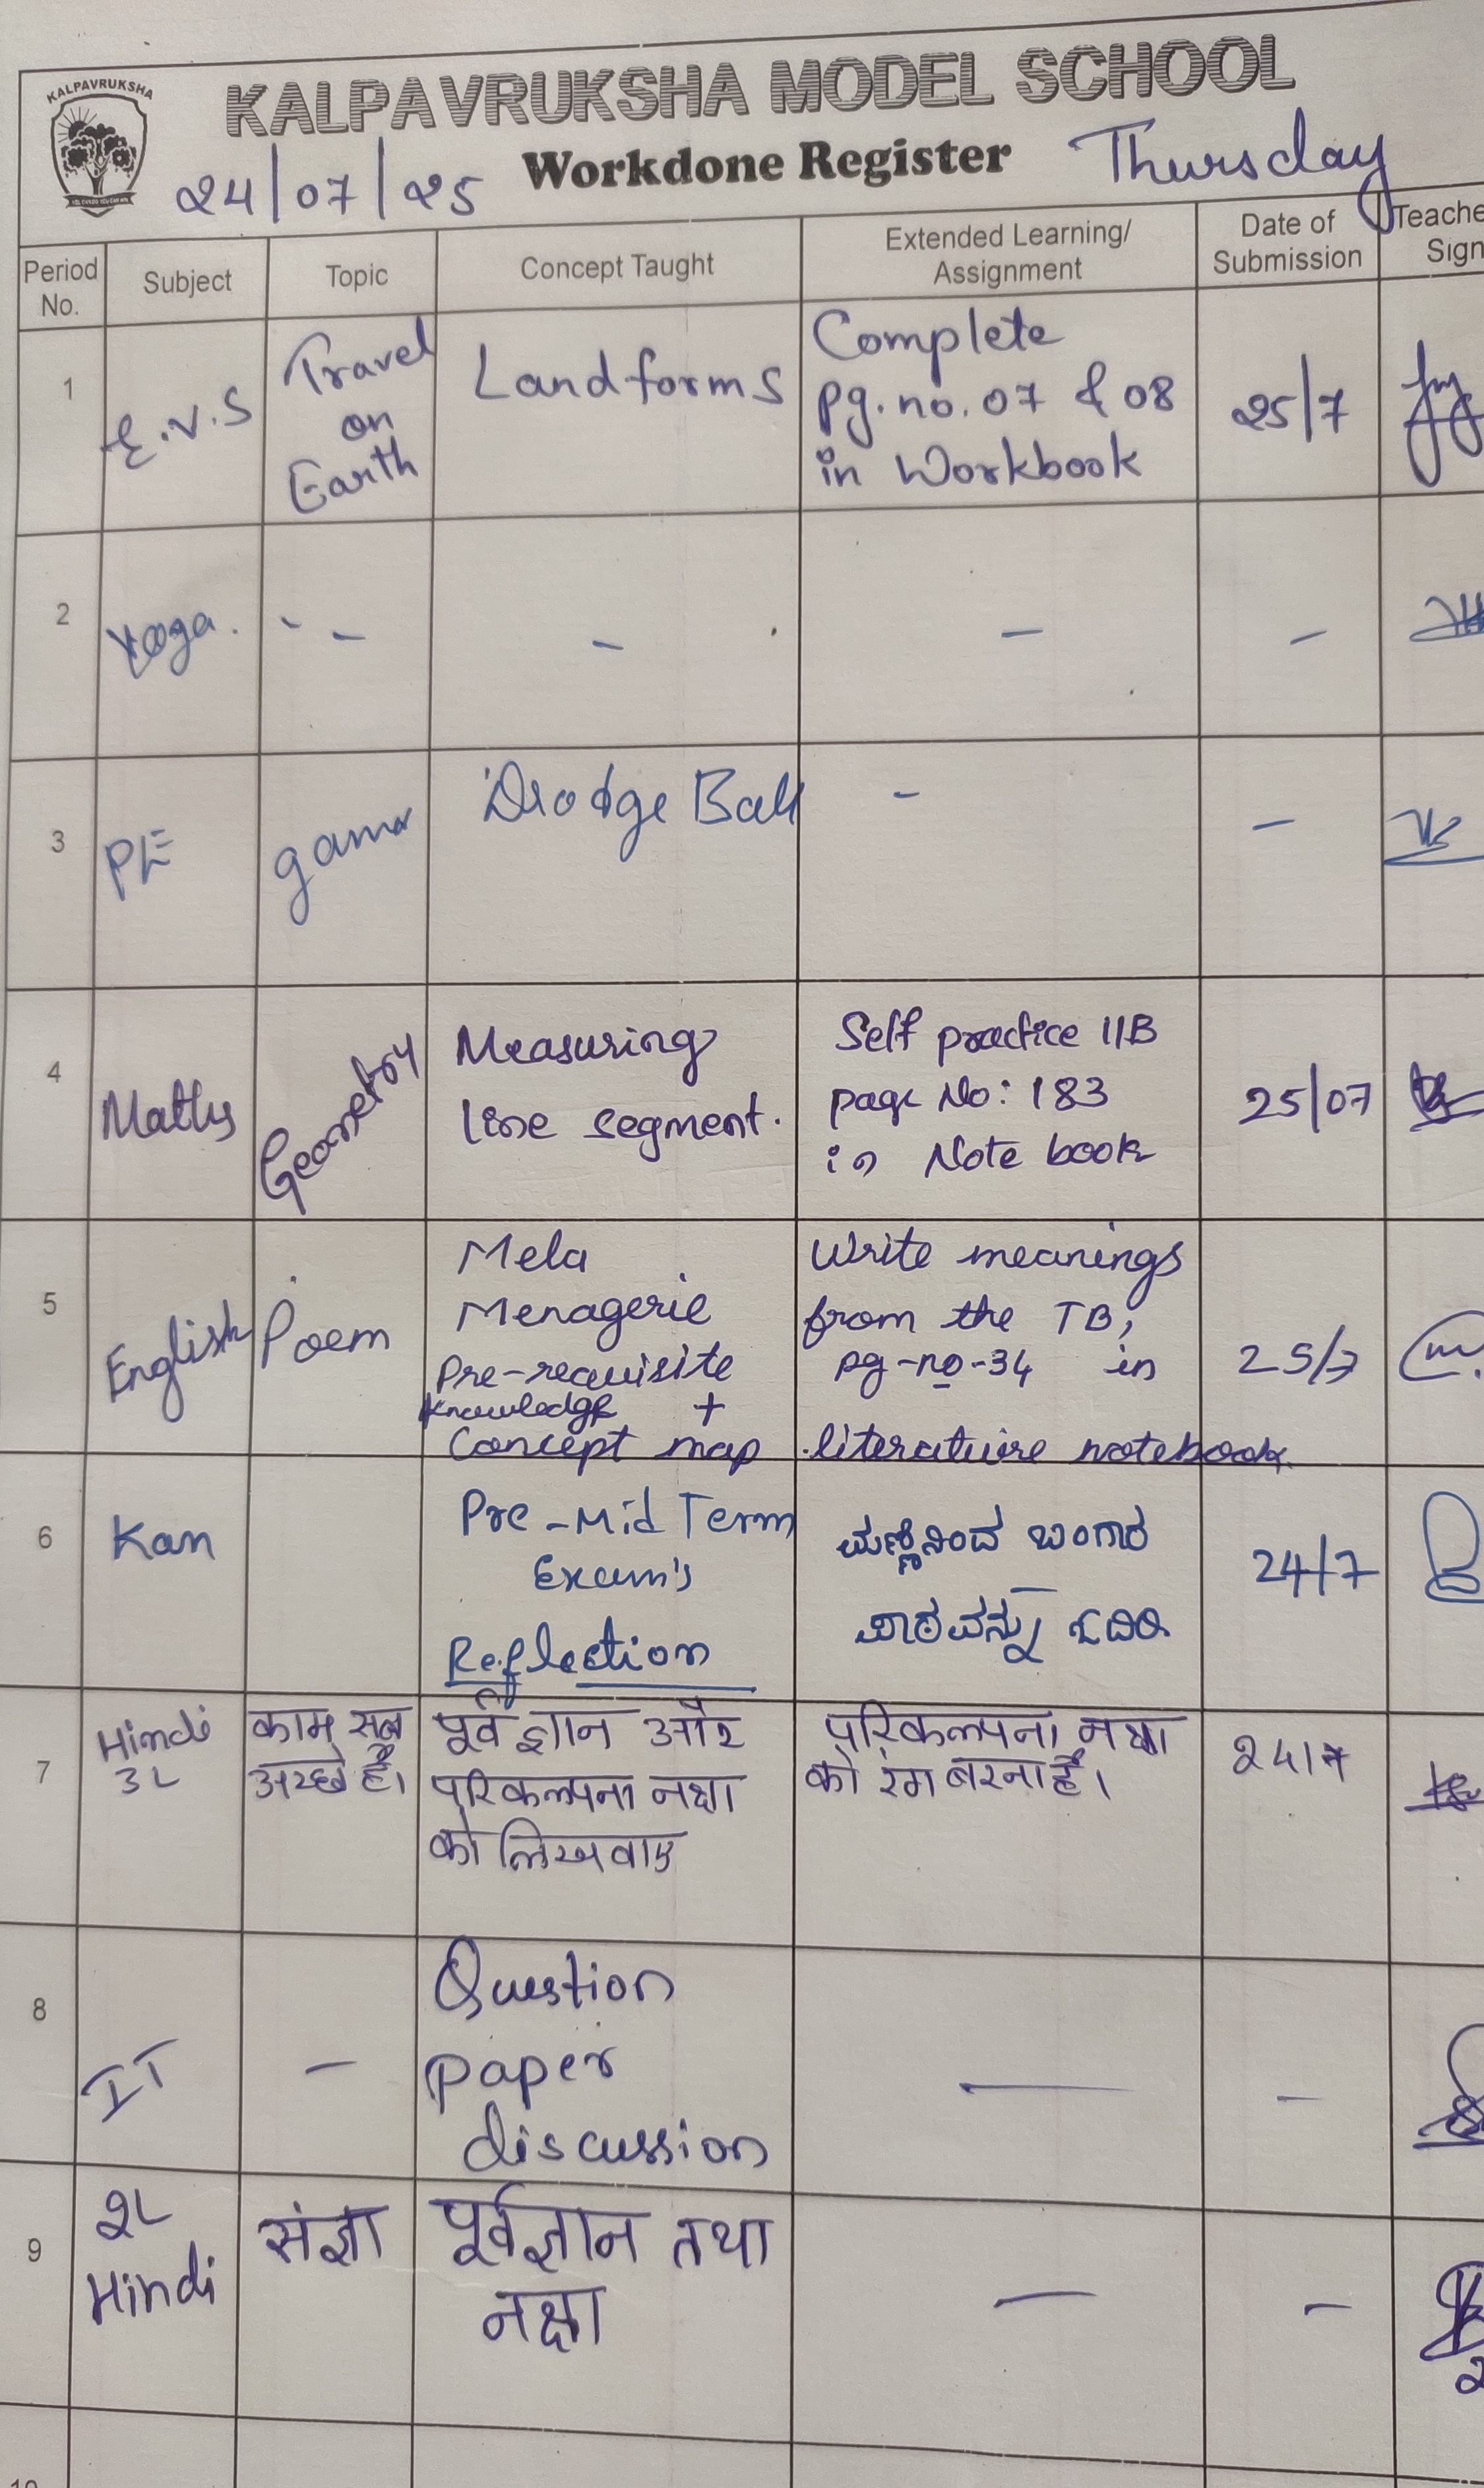 KALPAVRUKSHA
KALPAVRUKSHA MODEL SCHOOL
24/07/25 Workdone Register Thursday
Period No. Subject Topic Concept Taught Extended Learning/ Assignment Date of Submission Teache Sign
1 E.V.S Travel on Earth Landforms Complete pg.no.07 & 08 in Workbook 25/7
2 Yoga. - - - - -
3 PE game Drodge Ball - -
4 Maths Geometry Measuring line segment. Self practice 11B page No: 183 in Note book 25/07
5 English Poem Mela Menagerie Pre-requisite knowledge + Concept map Write meanings from the TB, pg-no-34 in literature notebook 25/7
6 Kan Pre-Mid Term Exam's Reflection ಮಣ್ಣಿನಿಂದ ಬಂಗಾರ ಪಾಠವನ್ನು ಓದಿರಿ 24/7
7 Hindi 3L काम सब अच्छे है। पूर्व ज्ञान और परिकल्पना नक्षा को लिखवाए परिकल्पना नक्षा को रंग बरना है। 24/7
8 IT - Question paper discussion - -
9 2L Hindi संज्ञा पूर्वज्ञान तथा नक्षा - -